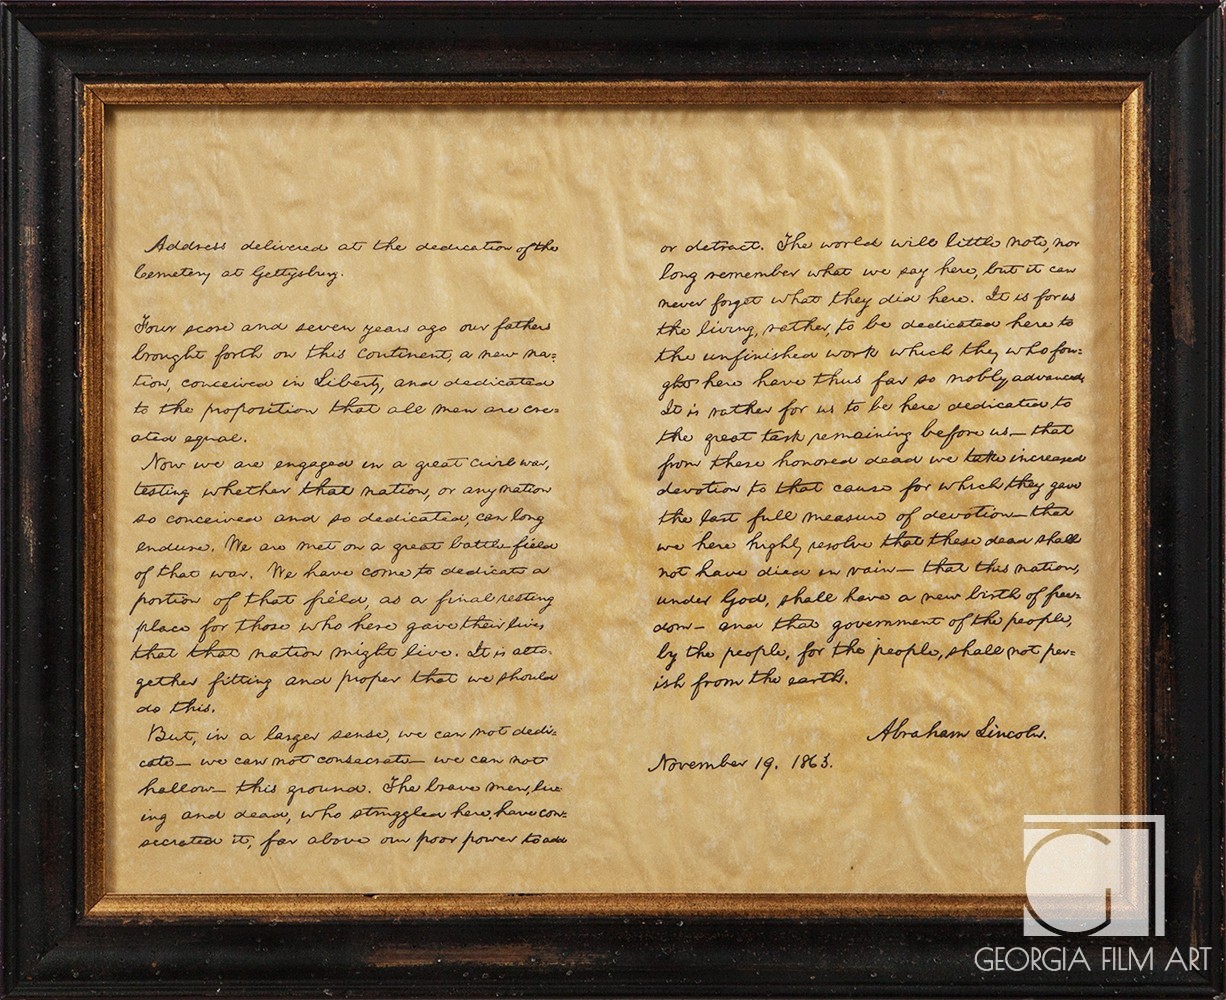 Address delivered at the dedication of the
Cemetery at Gettysburg.
Four score and seven years ago our fathers
brought forth on this continent, a new na=
tion, conceived in Liberty, and dedicated
to the proposition that all men are cre=
ated equal.
Now we are engaged in a great civil war,
testing whether that nation, or any nation
so conceived and so dedicated, can long
endure. We are met on a great battle-field
of that war. We have come to dedicate a
portion of that field, as a final resting
place for those who here gave their lives
that that nation might live. It is alto-
gether fitting and proper that we should
do this.
But, in a larger sense, we can not dedi-
cate— we can not consecrate— we can not
hallow— this ground. The brave men, liv-
ing and dead, who struggled here, have con-
secrated it, far above our poor power to add
or detract. The world will little note, nor
long remember what we say here, but it can
never forget what they did here. It is for us
the living, rather, to be dedicated here to
the unfinished work which they who fou-
ght here have thus far so nobly advanced.
It is rather for us to be here dedicated to
the great task remaining before us— that
from these honored dead we take increased
devotion to that cause for which they gave
the last full measure of devotion— that
we here highly resolve that these dead shall
not have died in vain— that this nation,
under God, shall have a new birth of free-
dom— and that government of the people,
by the people, for the people, shall not per-
ish from the earth.
Abraham Lincoln.
November 19. 1863.
G
GEORGIA FILM ART